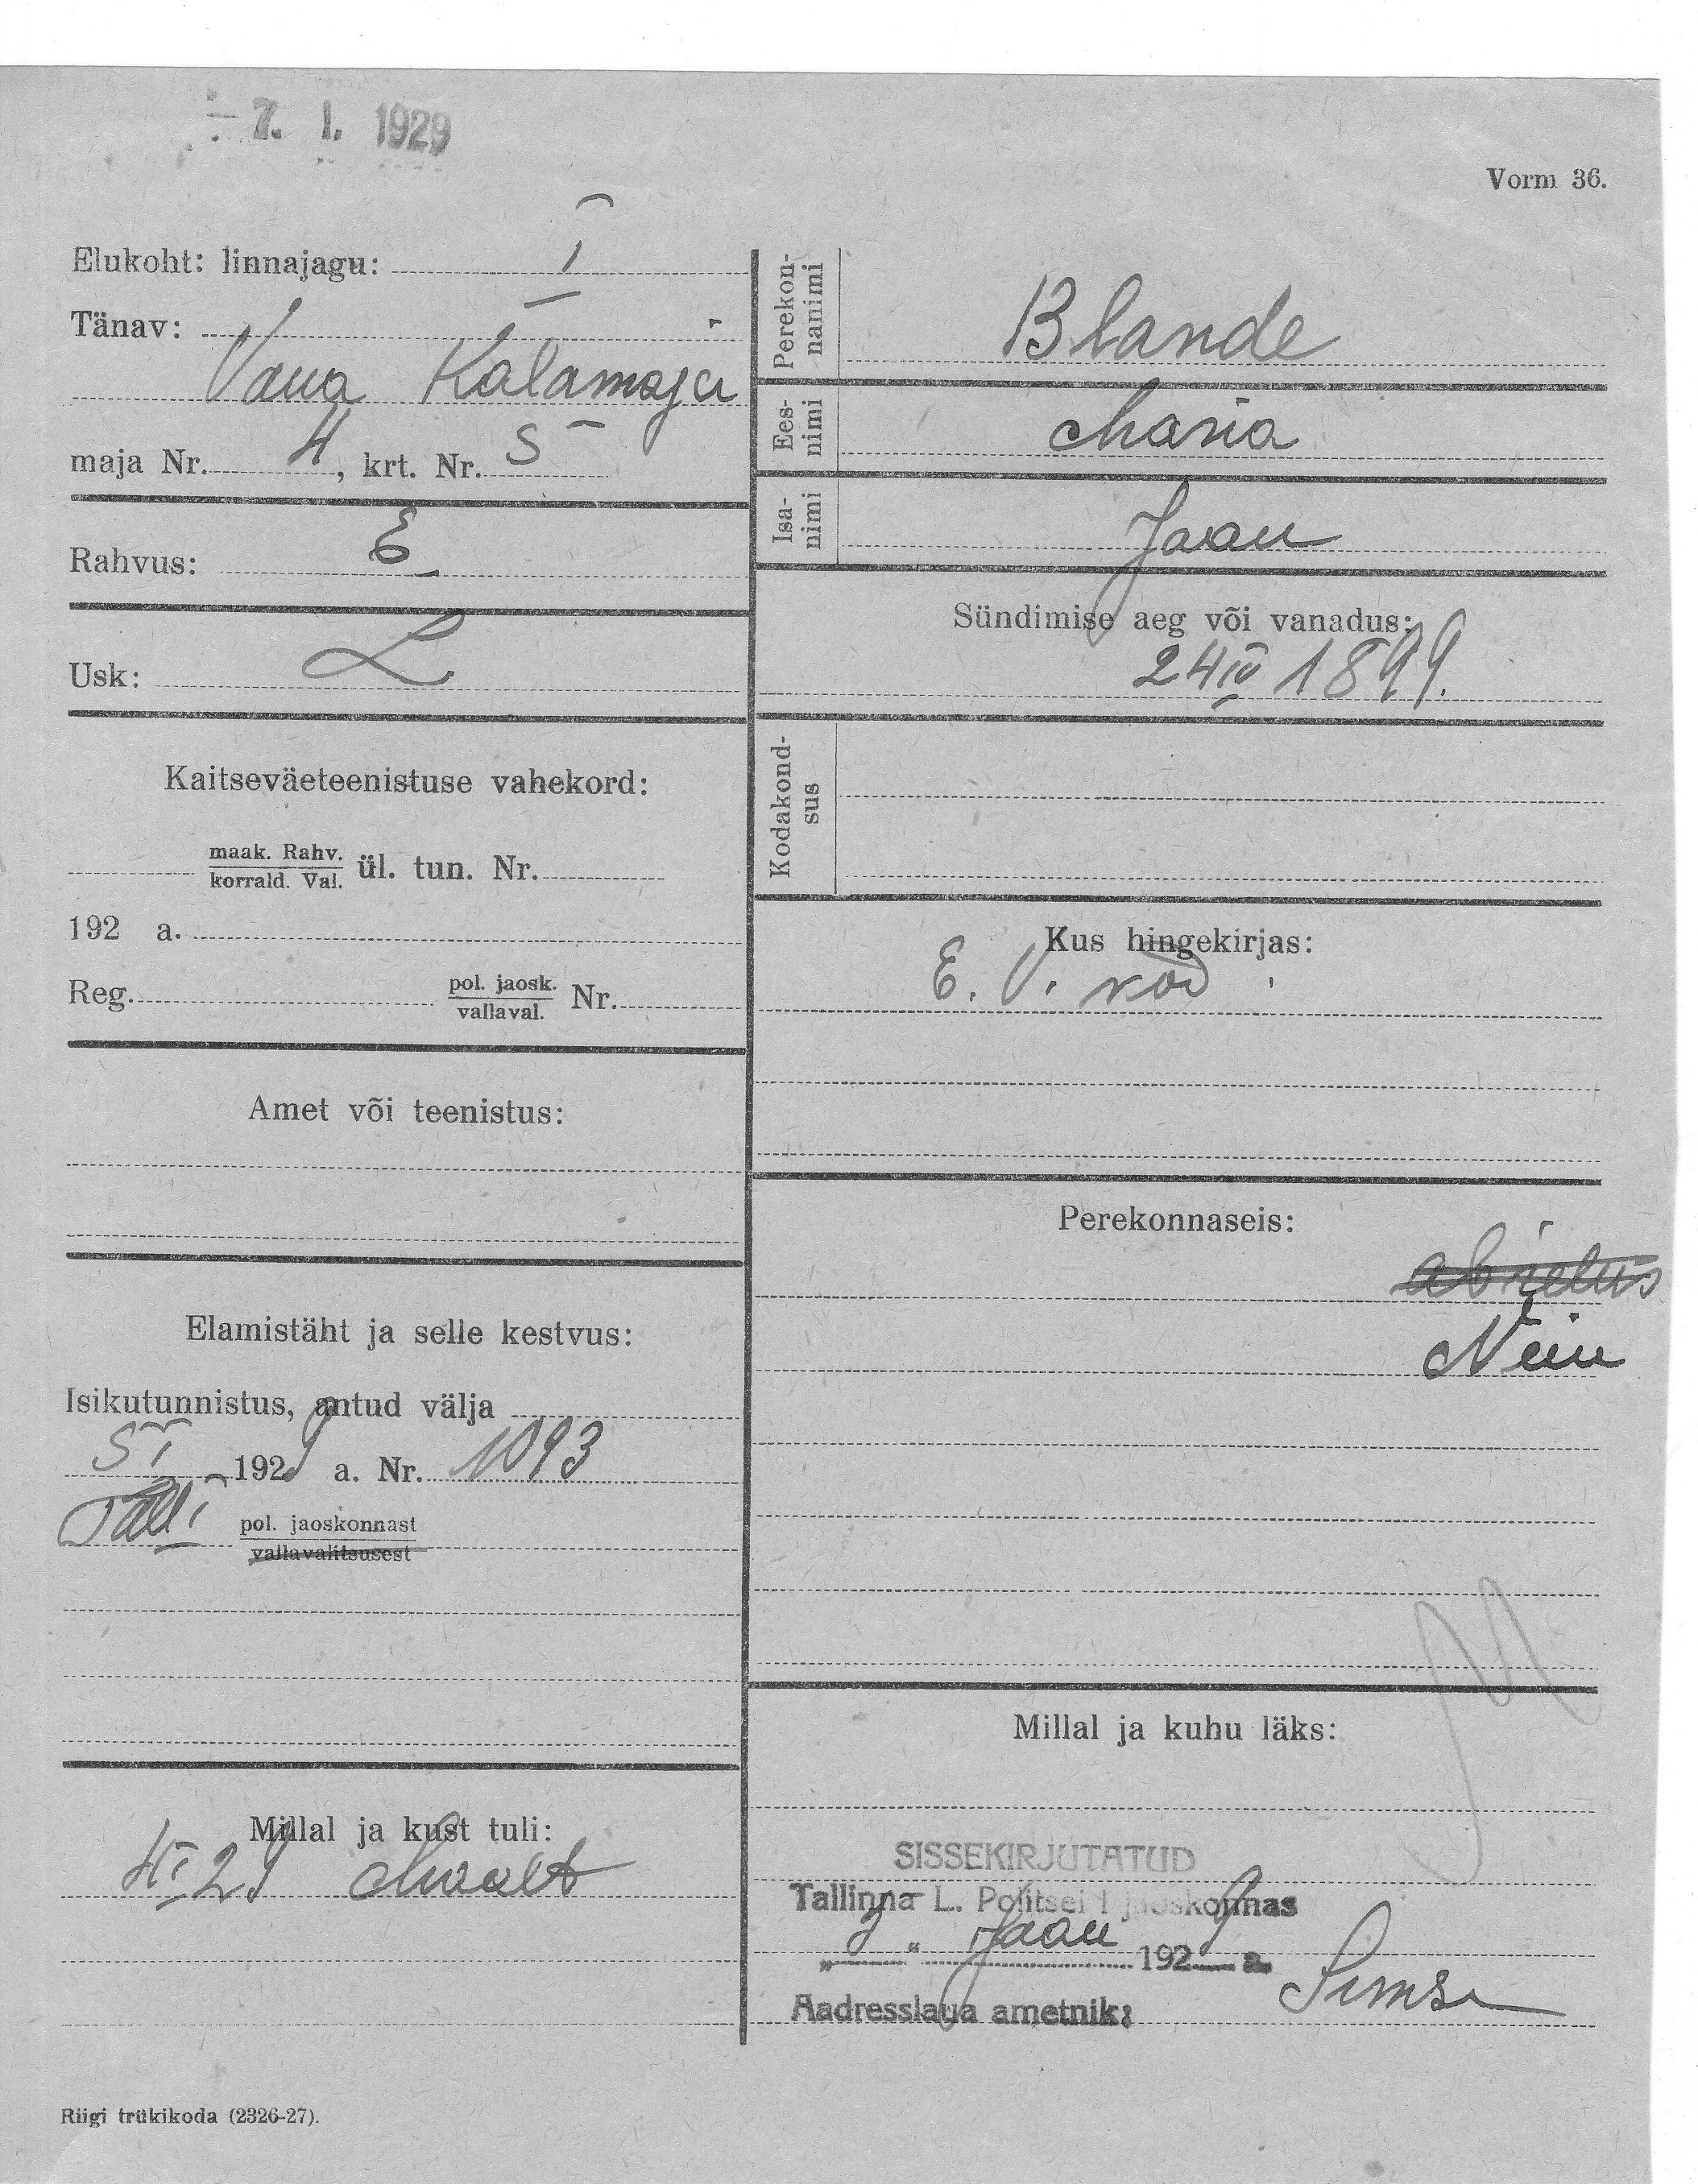 - 7. I. 1929
Vorm 36.
Elukoht: linnajagu: I
Tänav:
Vana Kalamaja
maja Nr. 4, krt. Nr. 5
Rahvus: E
Usk: L
Kaitseväeteenistuse vahekord:
maak. Rahv.
korrald. Val. ül. tun. Nr.
192 a.
Reg. pol. jaosk.
vallaval. Nr.
Amet või teenistus:
Elamistäht ja selle kestvus:
Isikutunnistus, antud välja
5 I 1929 a. Nr. 1093
Tall. I pol. jaoskonnast
vallavalitsusest
Millal ja kust tuli:
4 I 29 maalt
Riigi trükikoda (2326-27).
Perekon-
nanimi
Blande
Ees-
nimi
Maria
Isa-
nimi
Jaan
Sündimise aeg või vanadus:
24 IV 1899.
Kodakond-
sus
Kus hingekirjas:
E. V. kod
Perekonnaseis:
abielus
Neiu
Millal ja kuhu läks:
SISSEKIRJUTATUD
Tallinna L. Politsei I jaoskonnas
„ 7 " Jaan 1929 a.
Aadresslaua ametnik: